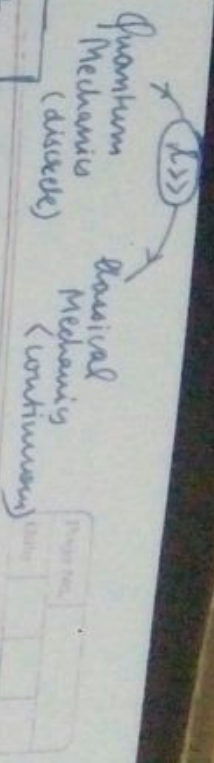 Quantum
Mechanics
(discrete)
λ>>
Classical
Mechanics
(continuous)
Page No.
Date